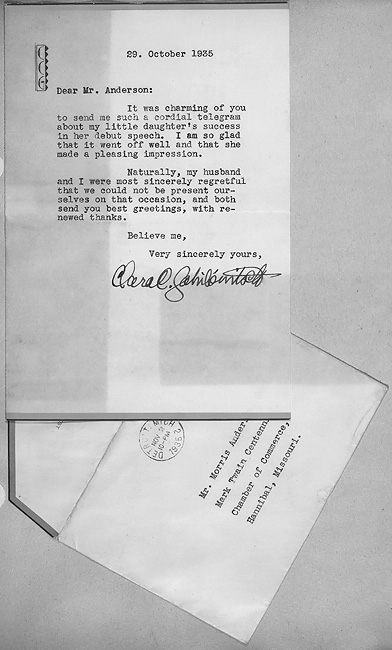 29. October 1935
Dear Mr. Anderson:
It was charming of you
to send me such a cordial telegram
about my little daughter's success
in her debut speech. I am so glad
that it went off well and that she
made a pleasing impression.
Naturally, my husband
and I were most sincerely regretful
that we could not be present our-
selves on that occasion, and both
send you best greetings, with re-
newed thanks.
Believe me,
Very sincerely yours,
Clara C. Gabrilowitsch
DETROIT, MICH
NOV
PM
Mr. Morris Ander
Mark Twain Centenn
Chamber of Commerce,
Hannibal, Missouri.